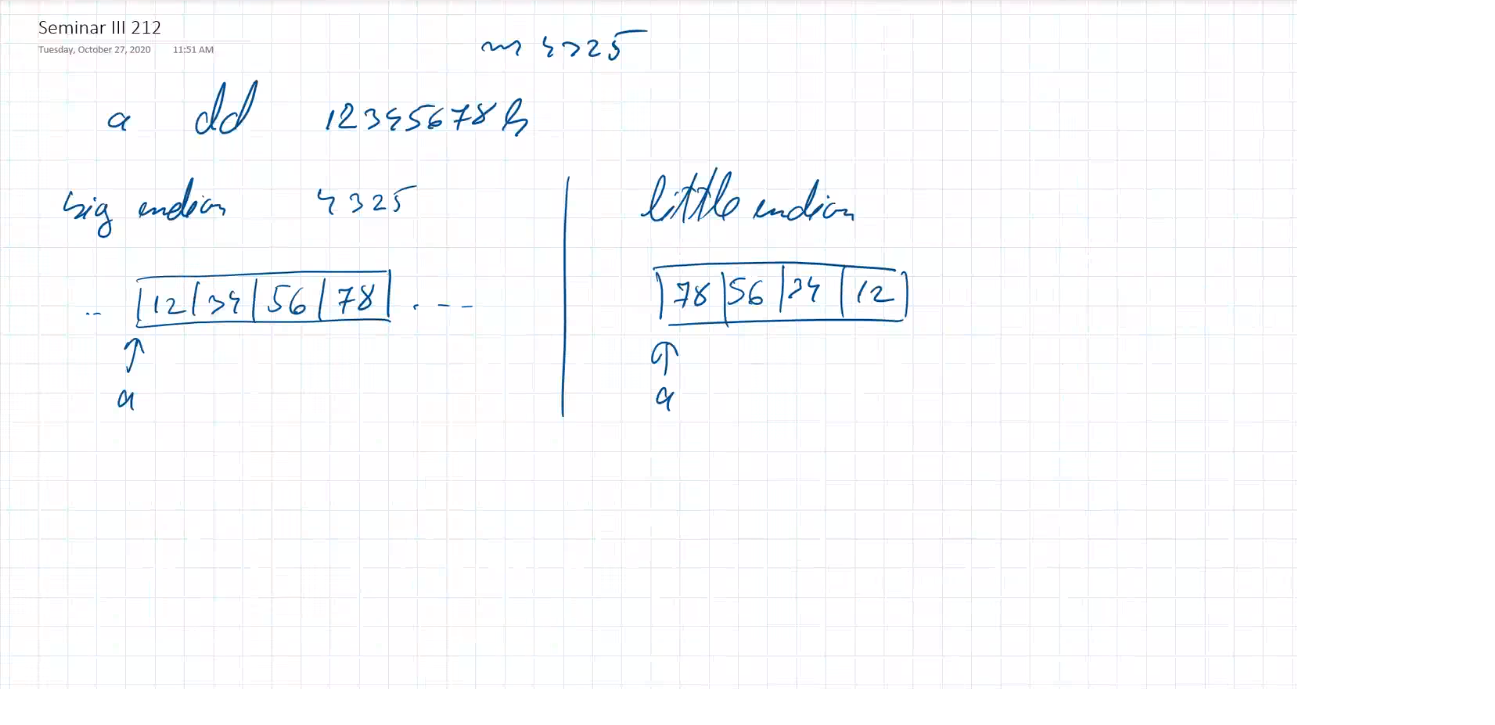 Seminar III 212
Tuesday, October 27, 2020 11:51 AM
4325
a dd 12345678h
big endian 4325
little endian
.. 12 34 56 78 . - -
78 56 34 12
a
a